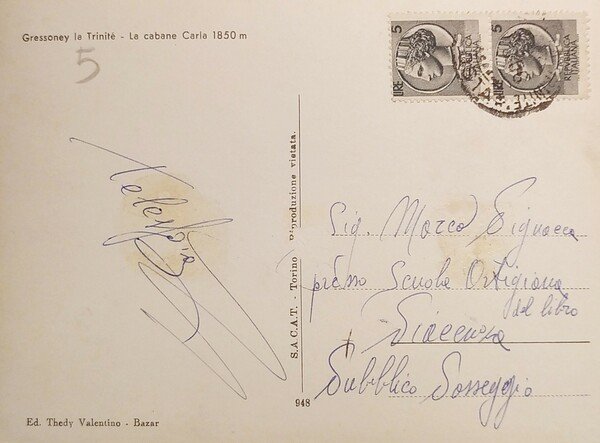 Gressoney la Trinité - La cabane Carla 1850 m
5
5
LIRE
REPUBBLICA
ITALIANA
5
LIRE
REPUBBLICA
ITALIANA
S.A.C.A.T. - Torino
Riproduzione vietata.
Sig. Marco
presso Scuola Artigiana
del libro
Piacenza
Pubblico Passeggio
948
Ed. Thedy Valentino - Bazar